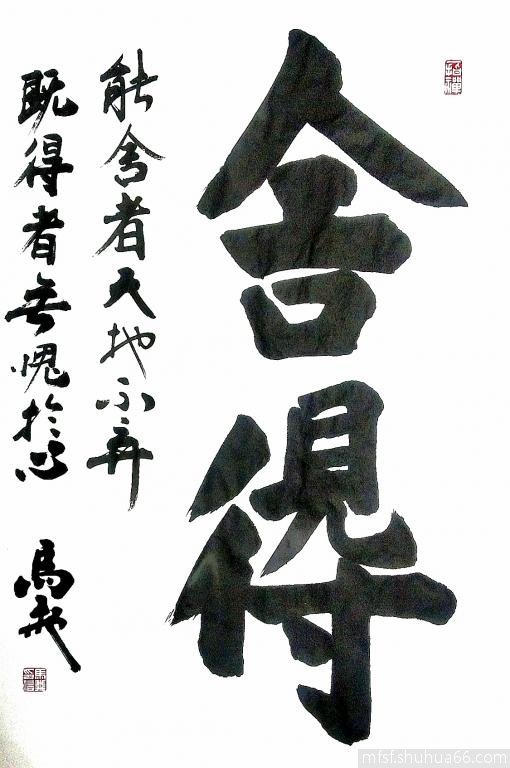 舍得
能舍者天地不弃
既得者無愧於心
馬
mfsf.shuhua66.com